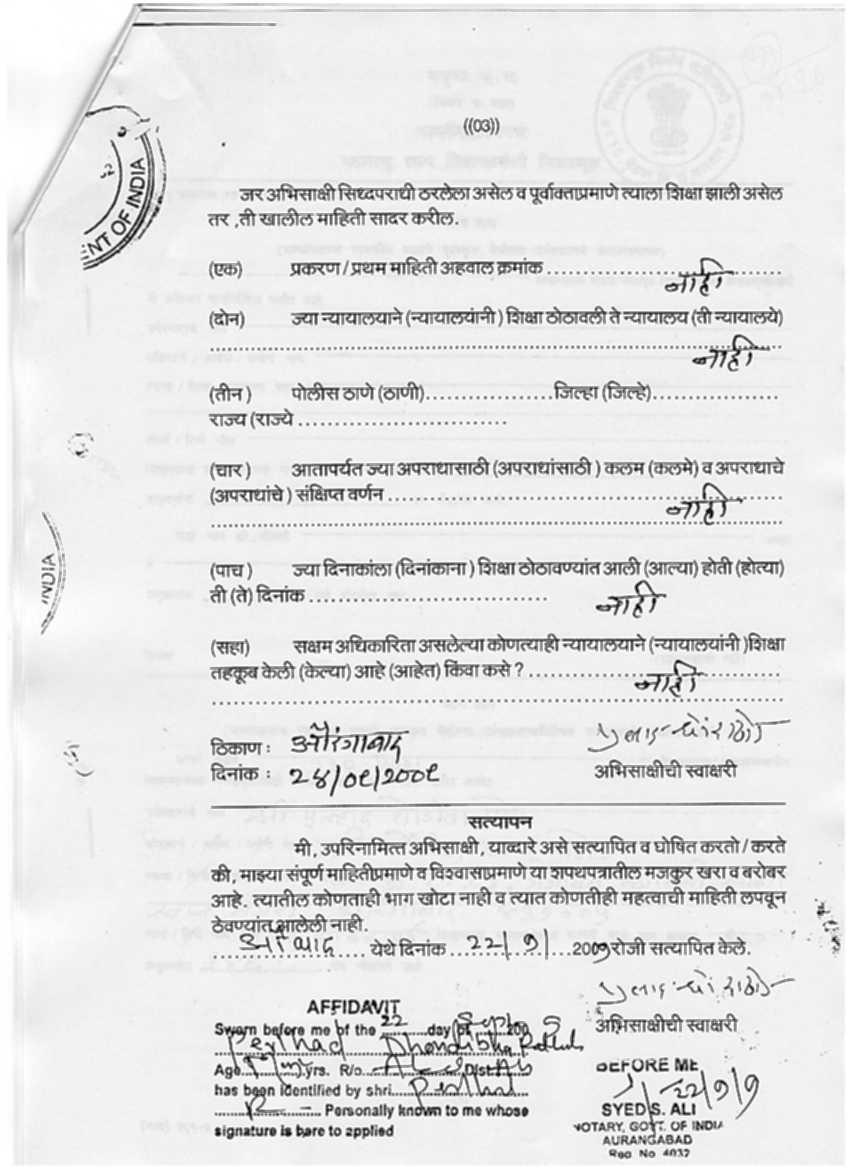 ((03))
जर अभिसाक्षी सिध्दपराधी ठरलेला असेल व पूर्वाक्ताप्रमाणे त्याला शिक्षा झाली असेल
तर ,ती खालील माहिती सादर करील.
ENT OF INDIA
(एक) प्रकरण / प्रथम माहिती अहवाल क्रमांक ........................
नाही
(दोन) ज्या न्यायालयाने (न्यायालयांनी ) शिक्षा ठोठावली ते न्यायालय (ती न्यायालये)
नाही
(तीन ) पोलीस ठाणे (ठाणी)..................जिल्हा (जिल्हे)..................
राज्य (राज्ये ............................
(चार ) आतापर्यत ज्या अपराधासाठी (अपराधांसाठी ) कलम (कलमे) व अपराधाचे
(अपराधांचे ) संक्षिप्त वर्णन ........................
नाही
(पाच ) ज्या दिनाकांला (दिनांकाना ) शिक्षा ठोठावण्यांत आली (आल्या) होती (होत्या)
ती (ते) दिनांक ............................... नाही
INDIA
(सहा) सक्षम अधिकारिता असलेल्या कोणत्याही न्यायालयाने (न्यायालयांनी )शिक्षा
तहकूब केली (केल्या) आहे (आहेत) किंवा कसे ? ........................
नाही
ठिकाण : औरंगाबाद
दिनांक : २४/०९/२००९ अभिसाक्षीची स्वाक्षरी
सत्यापन
मी, उपरिनामित्त अभिसाक्षी, याव्दारे असे सत्यापित व घोषित करतो / करते
की, माझ्या संपूर्ण माहितीप्रमाणे व विश्वासप्रमाणे या शपथपत्रातील मजकुर खरा व बरोबर
आहे. त्यातील कोणताही भाग खोटा नाही व त्यात कोणतीही महत्वाची माहिती लपवून
ठेवण्यांत आलेली नाही.
येथे दिनांक ...22/9/...2009 रोजी सत्यापित केले.
अभिसाक्षीची स्वाक्षरी
AFFIDAVIT
Sworn before me of the 22 day of Sep 200
Dhondiba
Age yrs. R/o Dist
has been identified by shri
Personally known to me whose
signature is bere to applied
BEFORE ME
22/9/9
SYED S. ALI
NOTARY, GOVT. OF INDIA
AURANGABAD
Reg No 4032